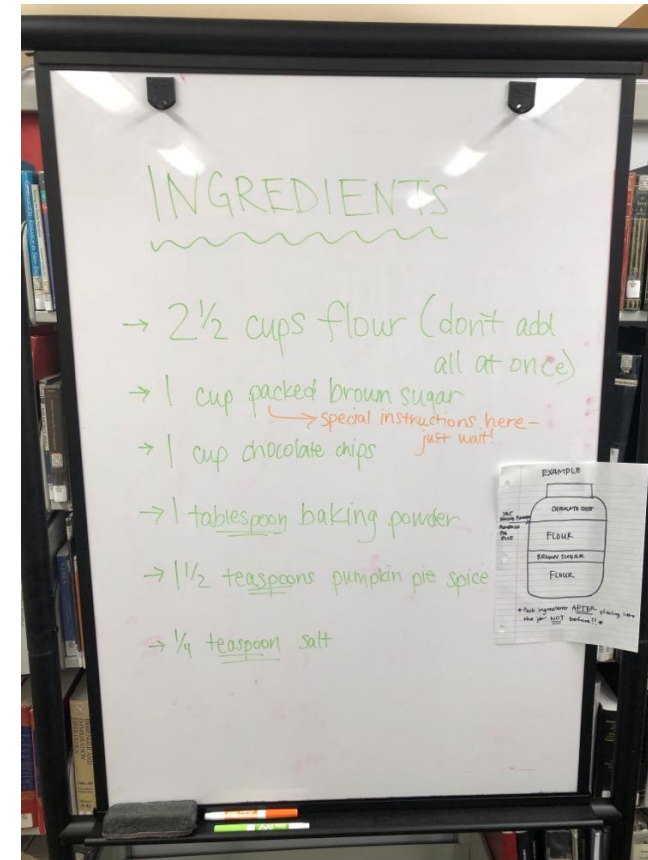 INGREDIENTS
→ 2½ cups flour (don't add
all at once)
→ 1 cup packed brown sugar
→ special instructions here -
just wait!
→ 1 cup chocolate chips
→ 1 tablespoon baking powder
→ 1½ teaspoons pumpkin pie spice
→ ¼ teaspoon salt
EXAMPLE
CHOCOLATE CHIPS
SALT
BAKING POWDER
PUMPKIN
PIE
SPICE
FLOUR
BROWN SUGAR
FLOUR
*Pack ingredients AFTER placing into
the jar NOT before!!*